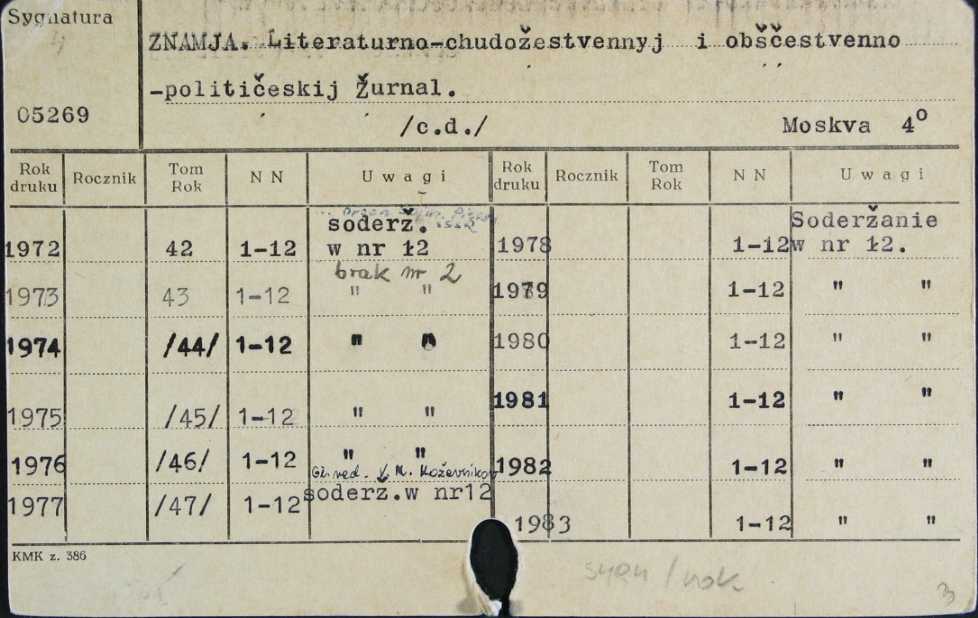 Sygnatura
ZNAMJA. Literaturno-chudožestvennyj i obščestvenno
-političeskij Žurnal.
05269
/c.d./ Moskva 4º
Rok druku Rocznik Tom Rok N N Uwagi Rok druku Rocznik Tom Rok N N Uwagi
soderž. Soderžanie
1972 42 1-12 w nr 12 1978 1-12 w nr 12.
brak nr 2
1973 43 1-12 " " 1979 1-12 " "
1974 /44/ 1-12 " " 1980 1-12 " "
1975 /45/ 1-12 " " 1981 1-12 " "
1976 /46/ 1-12 " " 1982 1-12 " "
Gł. red. V. M. Koževnikov
1977 /47/ 1-12 soderz.w nr12 1983 1-12 " "
KMK z. 386
3